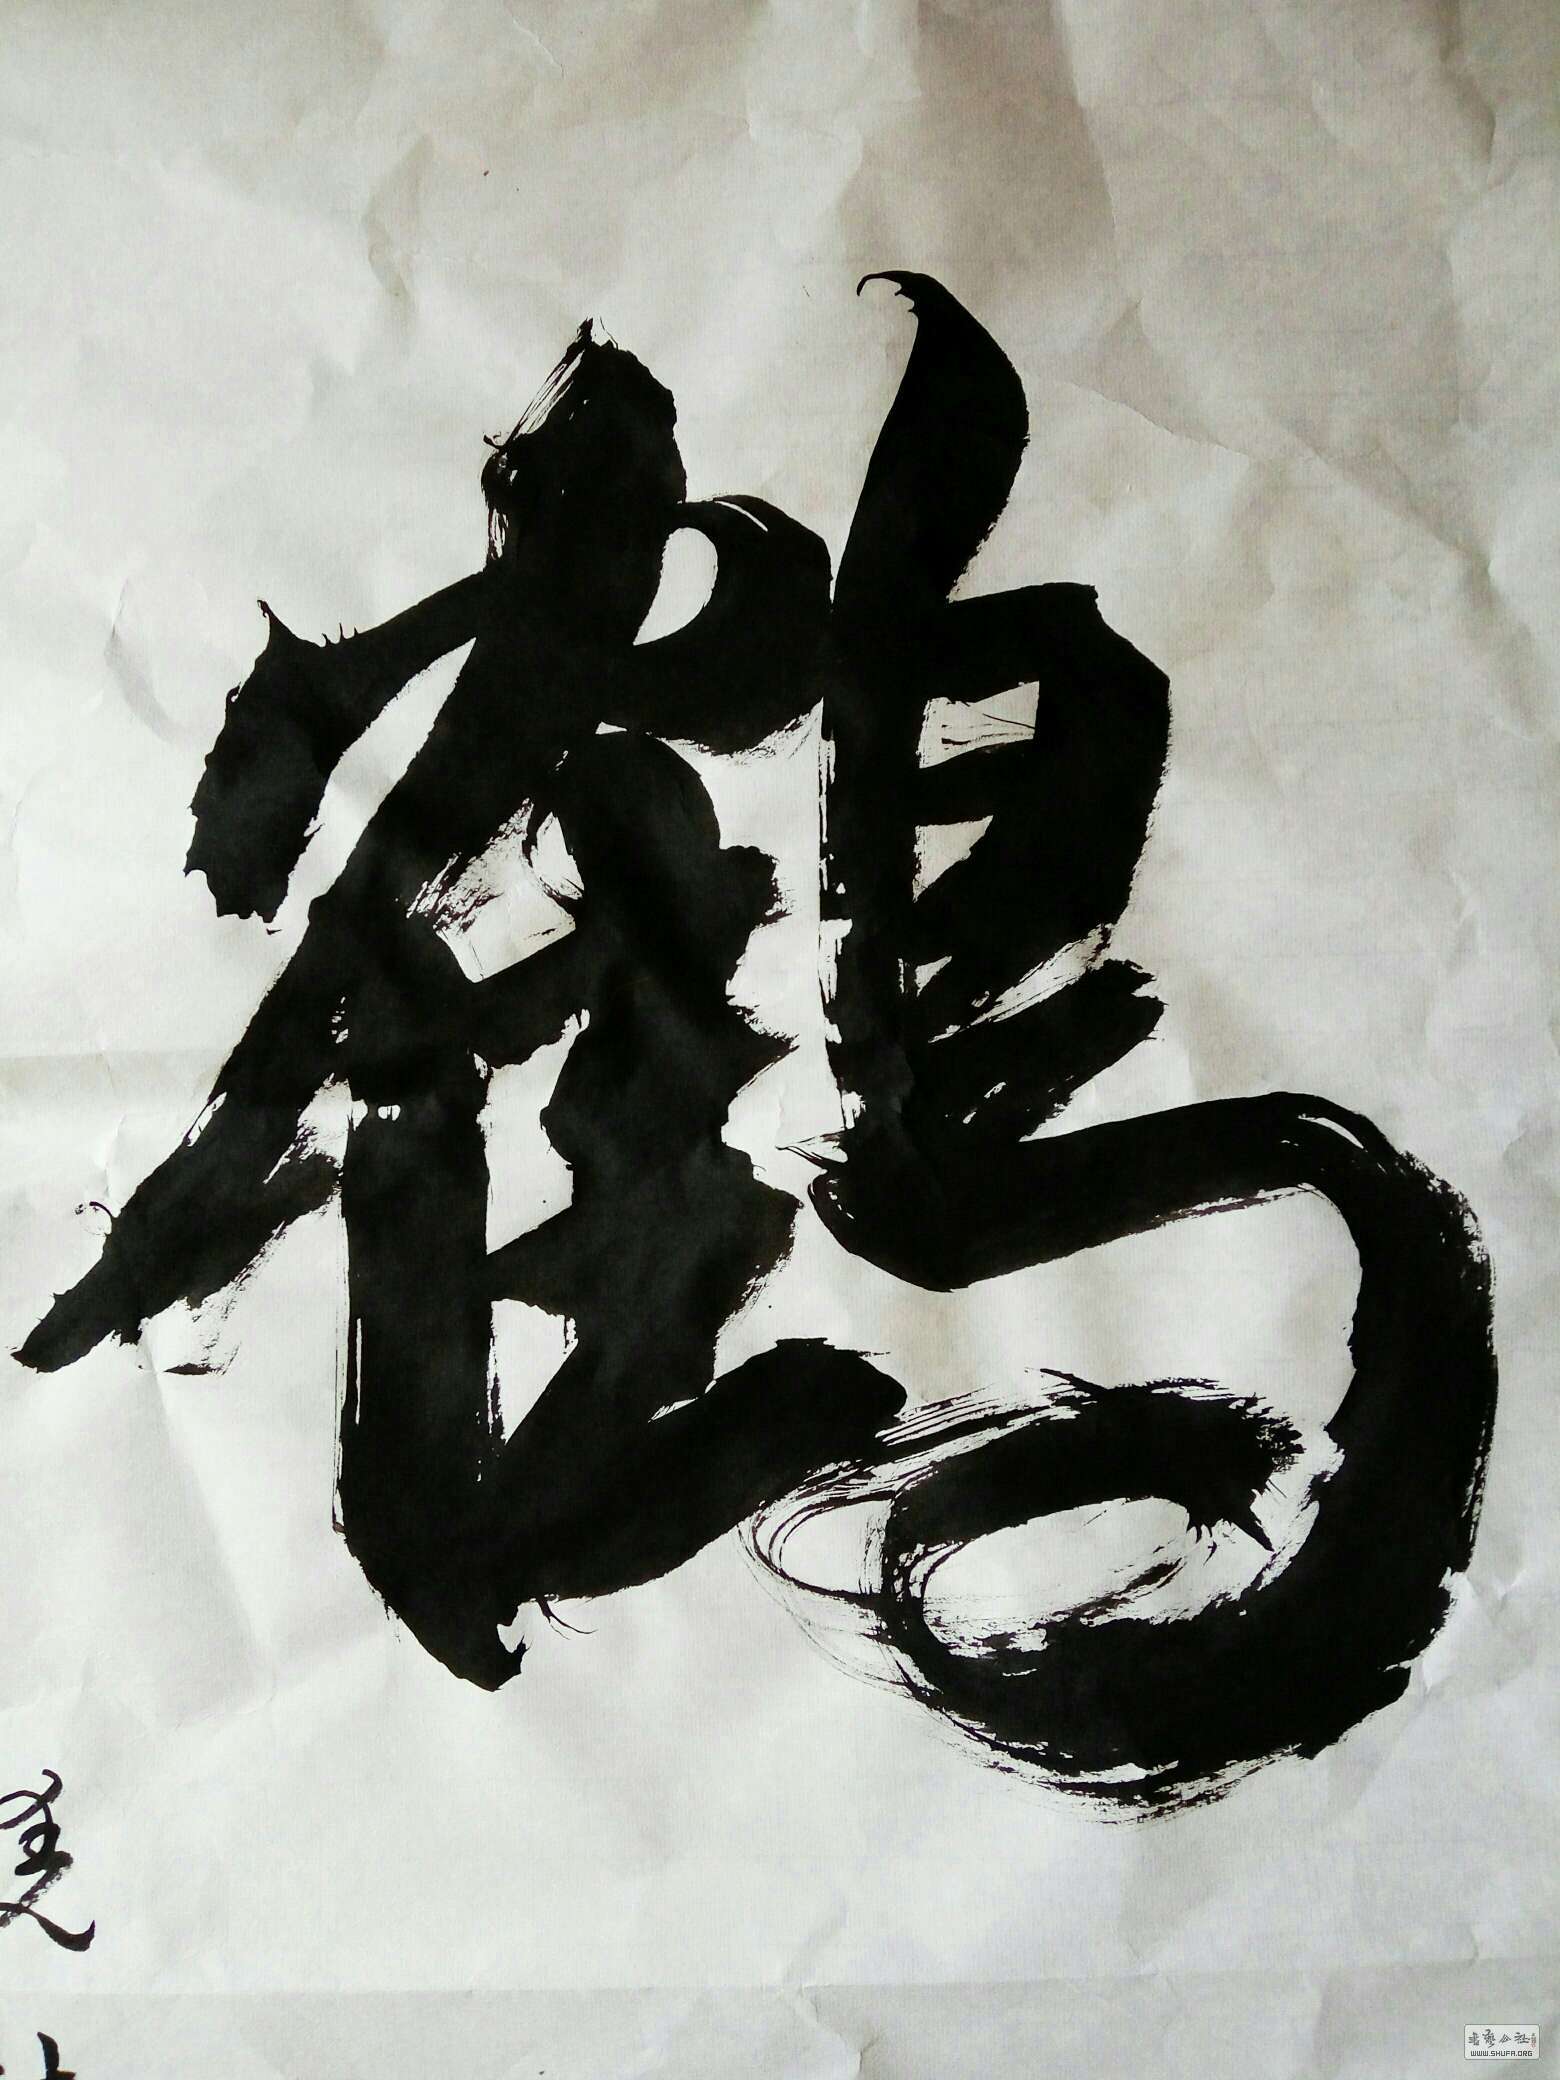 鹤
书艺公社
WWW.SHUFA.ORG